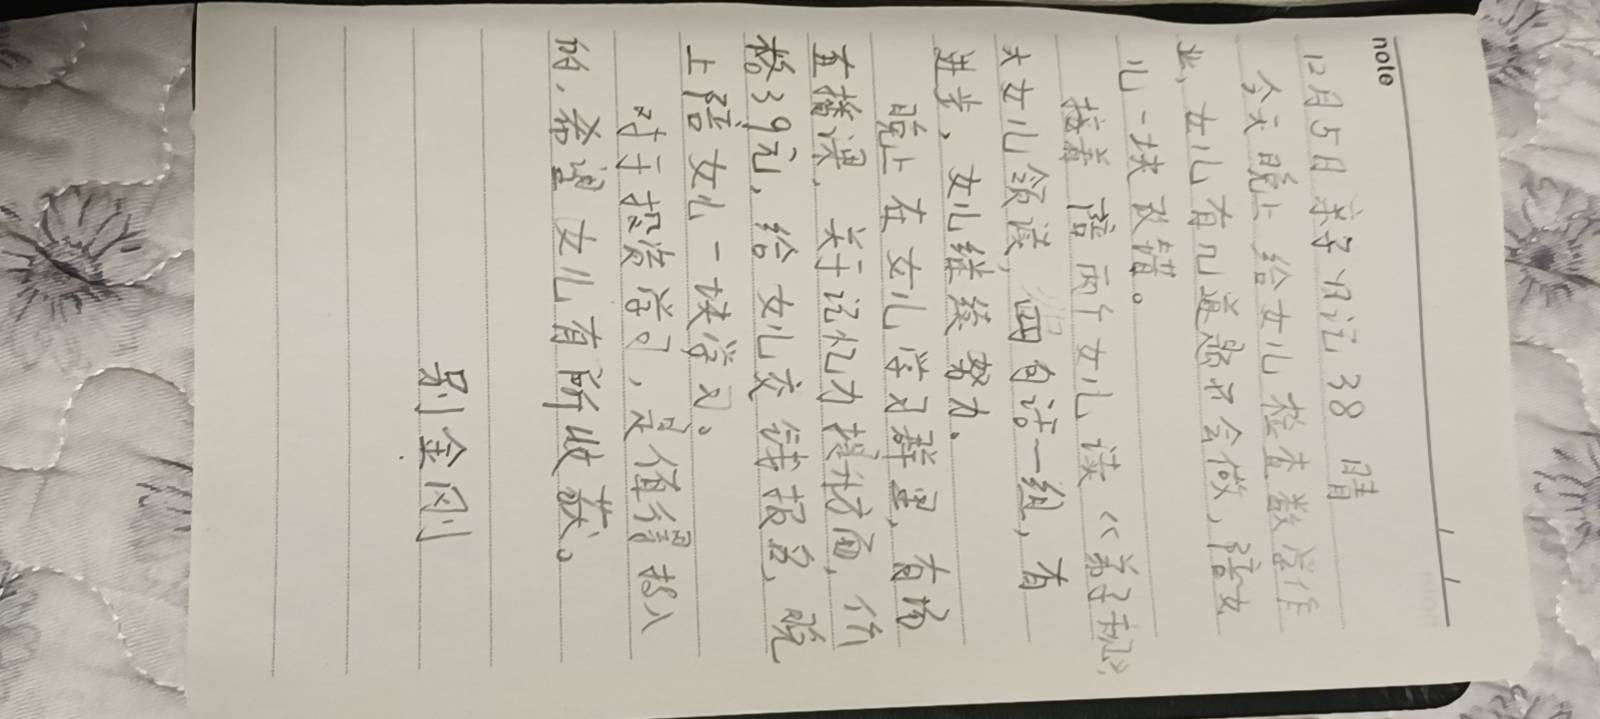 note
12月5日 亲子日记38 晴
今天晚上给女儿检查数学作
业,女儿有几道题不会做,陪女
儿一块改错。
接着陪两个女儿读《弟子规》,
大女儿领读,四句话一组,有
进步,女儿继续努力。
晚上在女儿学习群里,有场
直播课,关于记忆力提升方面,价
格39元,给女儿交钱报名,晚
上陪女儿一块学习。
对于投资学习,是值得投入
的,希望女儿有所收获。
别金刚